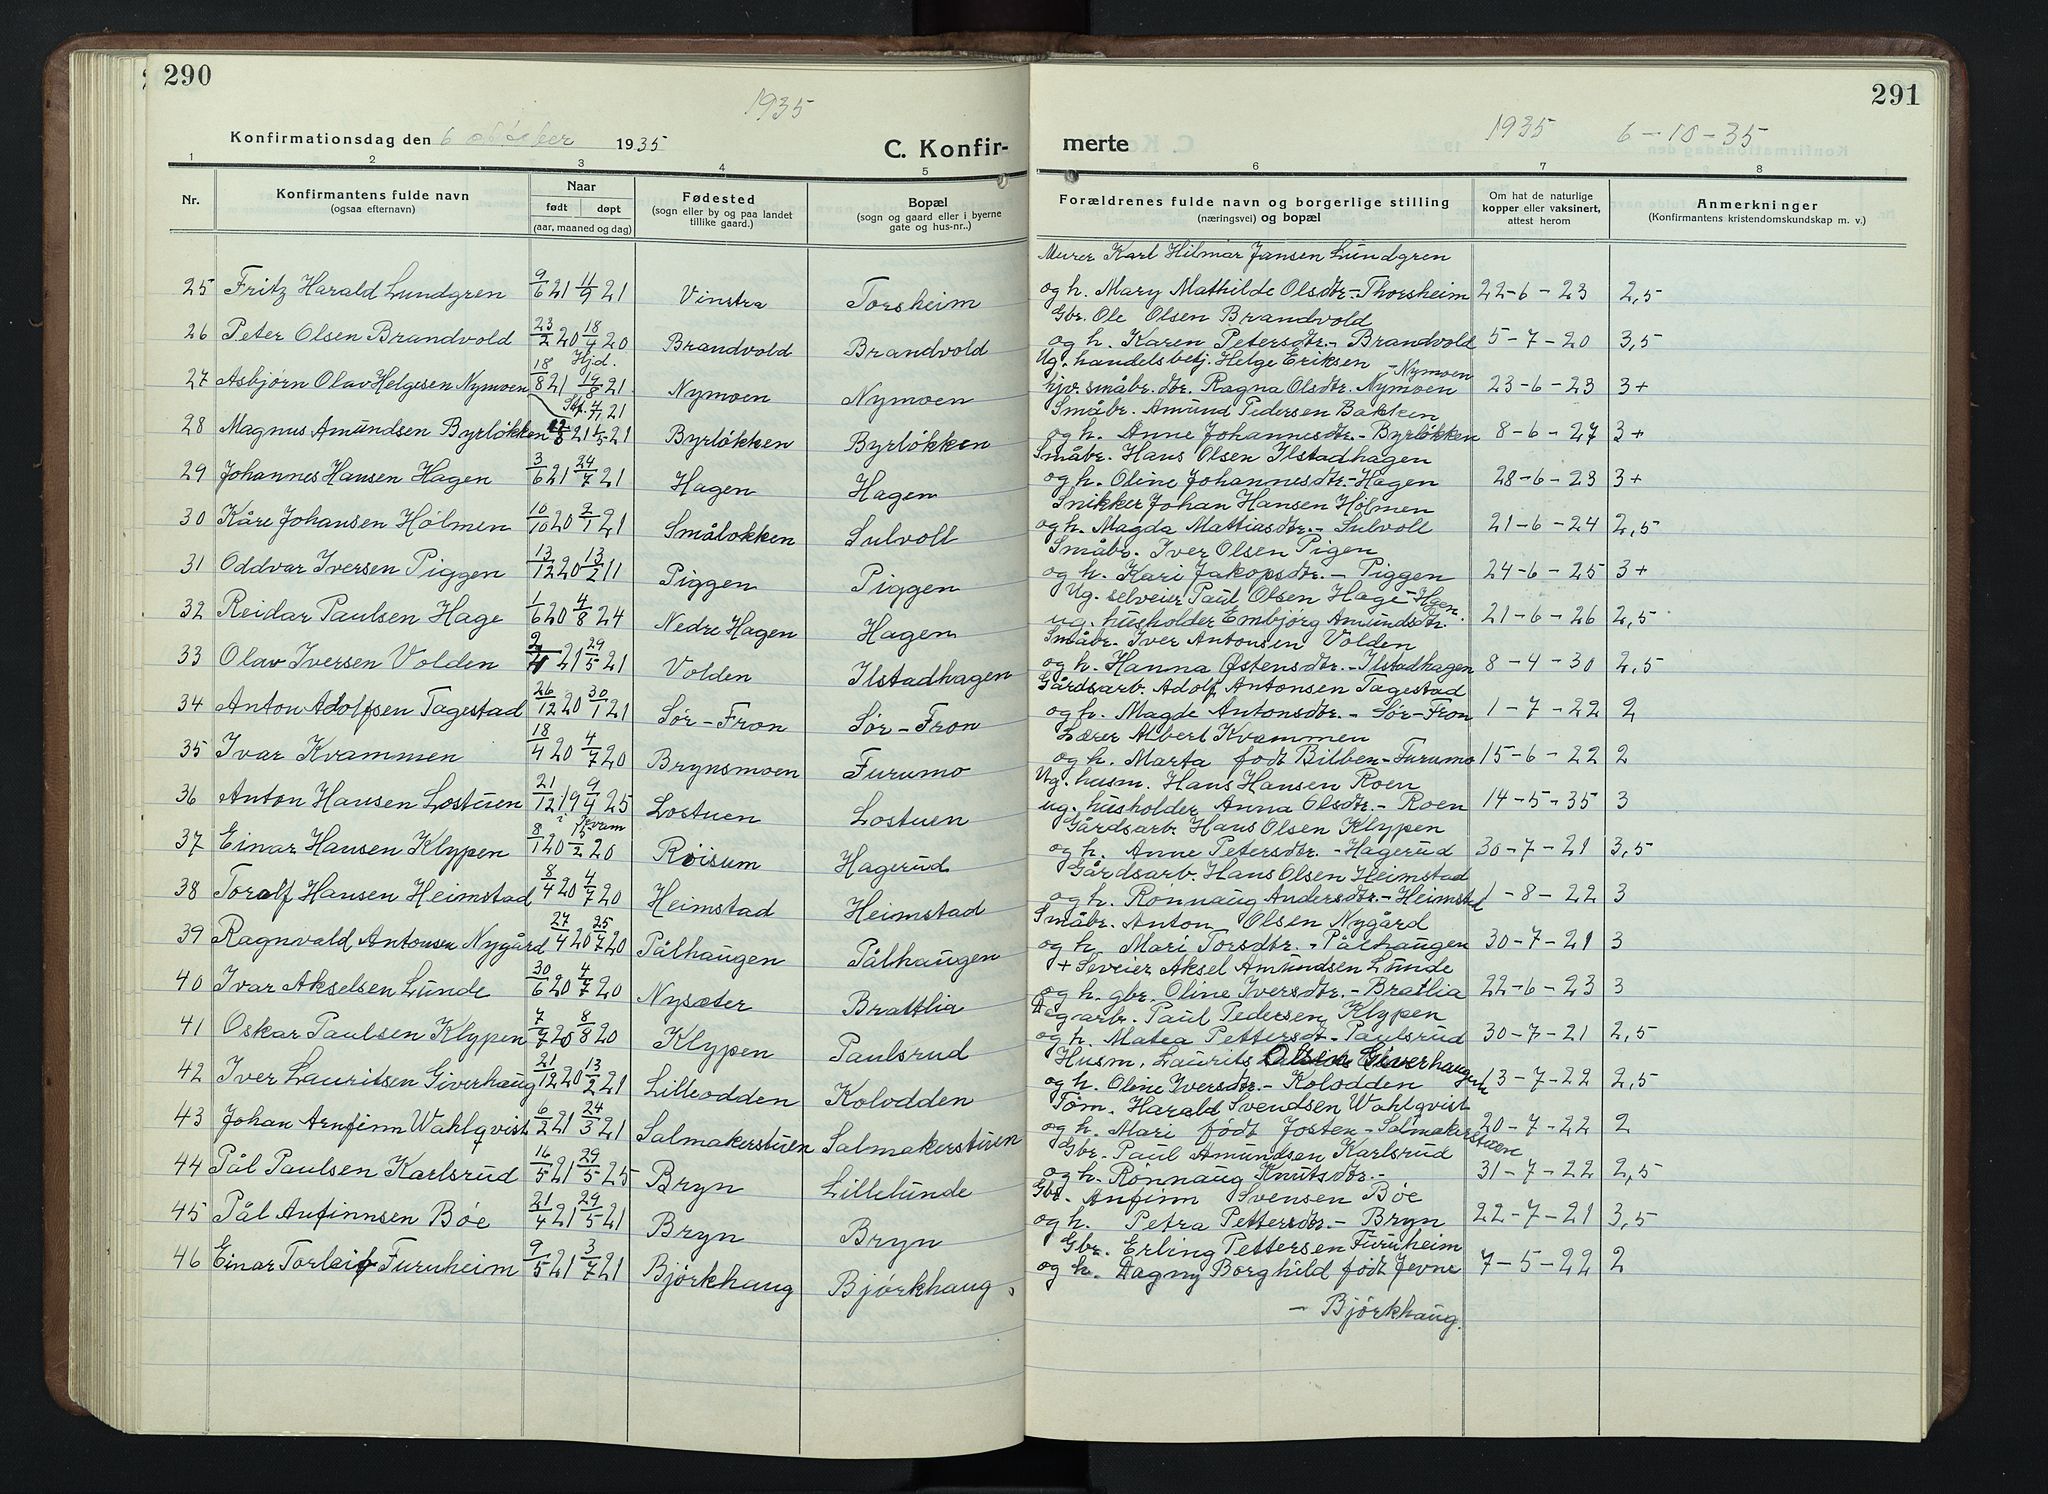 290
1935
Konfirmationsdag den 6 oktober 1935
C. Konfir-
1 2 3 4 5
Nr.
Konfirmantens fulde navn
(ogsaa efternavn)
Naar
født døpt
(aar, maaned og dag)
Fødested
(sogn eller by og paa landet
tillike gaard.)
Bopæl
(sogn og gaard eller i byerne
gate og hus-nr.)
25 Fritz Harald Lundgren 9/6 21 11/9 21 Vinstra Torsheim
26 Peter Olsen Brandvold 23/2 20 18/4 20 Brandvold Brandvold
Hjd.
27 Asbjørn Olav Helgesen Nymoen 18/8 21 19/8 21 Nymoen Nymoen
28 Magnus Amundsen Byrløkken 21 21 Byrløkken Byrløkken
29 Johannes Hansen Hagen 3/6 21 24/7 21 Hagen Hagen
30 Kåre Johansen Holmen 10/10 20 2/1 21 Småløkken Sulvoll
31 Oddvar Iversen Piggen 13/12 20 13/2 11 Piggen Piggen
32 Reidar Paulsen Hage 1/6 20 4/8 24 Nedre Hagen Hagen
33 Olav Iversen Volden 21 29/5 21 Volden Ilstadhagen
34 Anton Adolfsen Tagestad 26/12 20 30/1 21 Sør-Fron Sør-Fron
35 Ivar Kvammen 18/4 20 4/7 20 Brynsmoen Furumo
36 Anton Hansen Lostuen 21/12 19 9/4 25 Lostuen Lostuen
i Kvam
37 Einar Hansen Klypen 8/1 20 15/2 20 Røisum Hagerud
38 Toralf Hansen Heimstad 8/4 20 4/7 20 Heimstad Heimstad
39 Ragnvald Antonsen Nygård 27/4 20 25/7 20 Pålhaugen Pålhaugen
40 Ivar Akselsen Lunde 30/6 20 4/7 20 Nysæter Brattlia
41 Oskar Paulsen Klypen 7/7 20 8/8 20 Klypen Paulsrud
42 Iver Lauritsen Giverhaug 21/12 20 13/2 21 Lilleodden Kolodden
43 Johan Arnfinn Wahlqvist 6/2 21 24/3 21 Salmakerstuen Salmakerstuen
44 Pål Paulsen Karlsrud 16/5 21 29/5 25 Bryn Lillelunde
45 Pål Anfinnsen Bøe 21/4 21 29/5 21 Bryn Bryn
46 Einar Torleif Furuheim 9/5 21 3/7 21 Bjørkhaug Bjørkhaug
291
1935 6-10-35
merte
6 7 8
Forældrenes fulde navn og borgerlige stilling
(næringsvei) og bopæl
Om hat de naturlige
kopper eller vaksinert,
attest herom
Anmerkninger
(Konfirmantens kristendomskundskap m. v.)
Murer Karl Hilmar Jansen Lundgren
og h. Mary Mathilde Olsdtr.-Thorsheim 22-6-23 2,5
Gbr. Ole Olsen Brandvold
og h. Karen Petersdtr.- Brandvold 5-7-20 3,5
Ug. handelsbetj. Helge Eriksen -Nymoen
hjv. småbr. dtr. Ragna Olsdtr. Nymoen 23-6-23 3+
Småbr. Amund Pedersen Bakken
og h. Anne Johannesdtr.- Byrløkken 8-6-27 3+
Småbr. Hans Olsen Ilstadhagen
og h. Oline Johannesdtr.-Hagen 28-6-23 3+
Snikker Johan Hansen Holmen
og h. Magda Mattiasdtr.- Sulvoll 21-6-24 2,5
Småbr. Iver Olsen Pigen
og h. Kari Jakopsdtr.- Piggen 24-6-25 3+
Ug. selveier Paul Olsen Hage -Hgen
ug. husholder Embjørg Amundsdtr. 21-6-26 2,5
Småbr. Iver Antonsen Volden
og h. Hanna Østensdtr.-Ilstadhagen 8-4-30 2,5
Gårdsarb. Adolf Antonsen Tagestad
og h. Magde Antonsdtr.- Sør-Fron 1-7-22 2
Lærer Albert Kvammen
og h. Marta født Bilben-Furumo 15-6-22 2
Ug. husm. Hans Hansen Roen
ug. husholder Anna Olsdtr.- Roen 14-5-35 3
Gårdsarb. Hans Olsen Klypen
og h. Anne Petersdtr.-Hagerud 30-7-21 3,5
Gårdsarb. Hans Olsen Heimstad
og h. Rønnaug Andersdtr.-Heimstad 1-8-22 3
Småbr. Anton Olsen Nygård
og h. Mari Torsdtr.-Pålhaugen 30-7-21 3
+ Seveier Aksel Amundsen Lunde
og h. gbr. Oline Iversdtr.- Bratlia 22-6-23 3
Dagarb. Paul Pedersen Klypen
og h. Matea Pettersdt.-Paulsrud 30-7-21 2,5
Husm. Laurits Olsen Giverhaugen
og h. Oline Iversdtr.- Kolodden 13-7-22 2,5
Tøm. Harald Svendsen Wahlqvist
og h. Mari født Josten-Salmakerstuen 20-7-22 2
Gbr. Paul Amundsen Karlsrud
og h. Rønnaug Knutsdtr.- 31-7-22 2,5
Gbr. Anfinn Svensen Bøe
og h. Petra Pettersdtr.- Bryn 22-7-21 3,5
Gbr. Erling Pettersen Furuheim
og h. Dagny Borghild født Jevne 7-5-22 2
- Bjørkhaug.